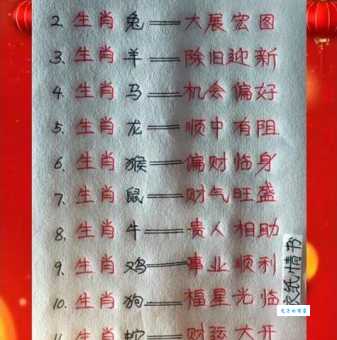 2. 生肖兔——大展宏图
3. 生肖羊——除旧迎新
4. 生肖马——机会偏好
5. 生肖龙——顺中有阻
6. 生肖猴——偏财临身
7. 生肖鼠——财气旺盛
8. 生肖牛——贵人相助
9. 生肖鸡——事业顺利
10. 生肖狗——福星光临
11. 生肖蛇——财弦大开
纸情书